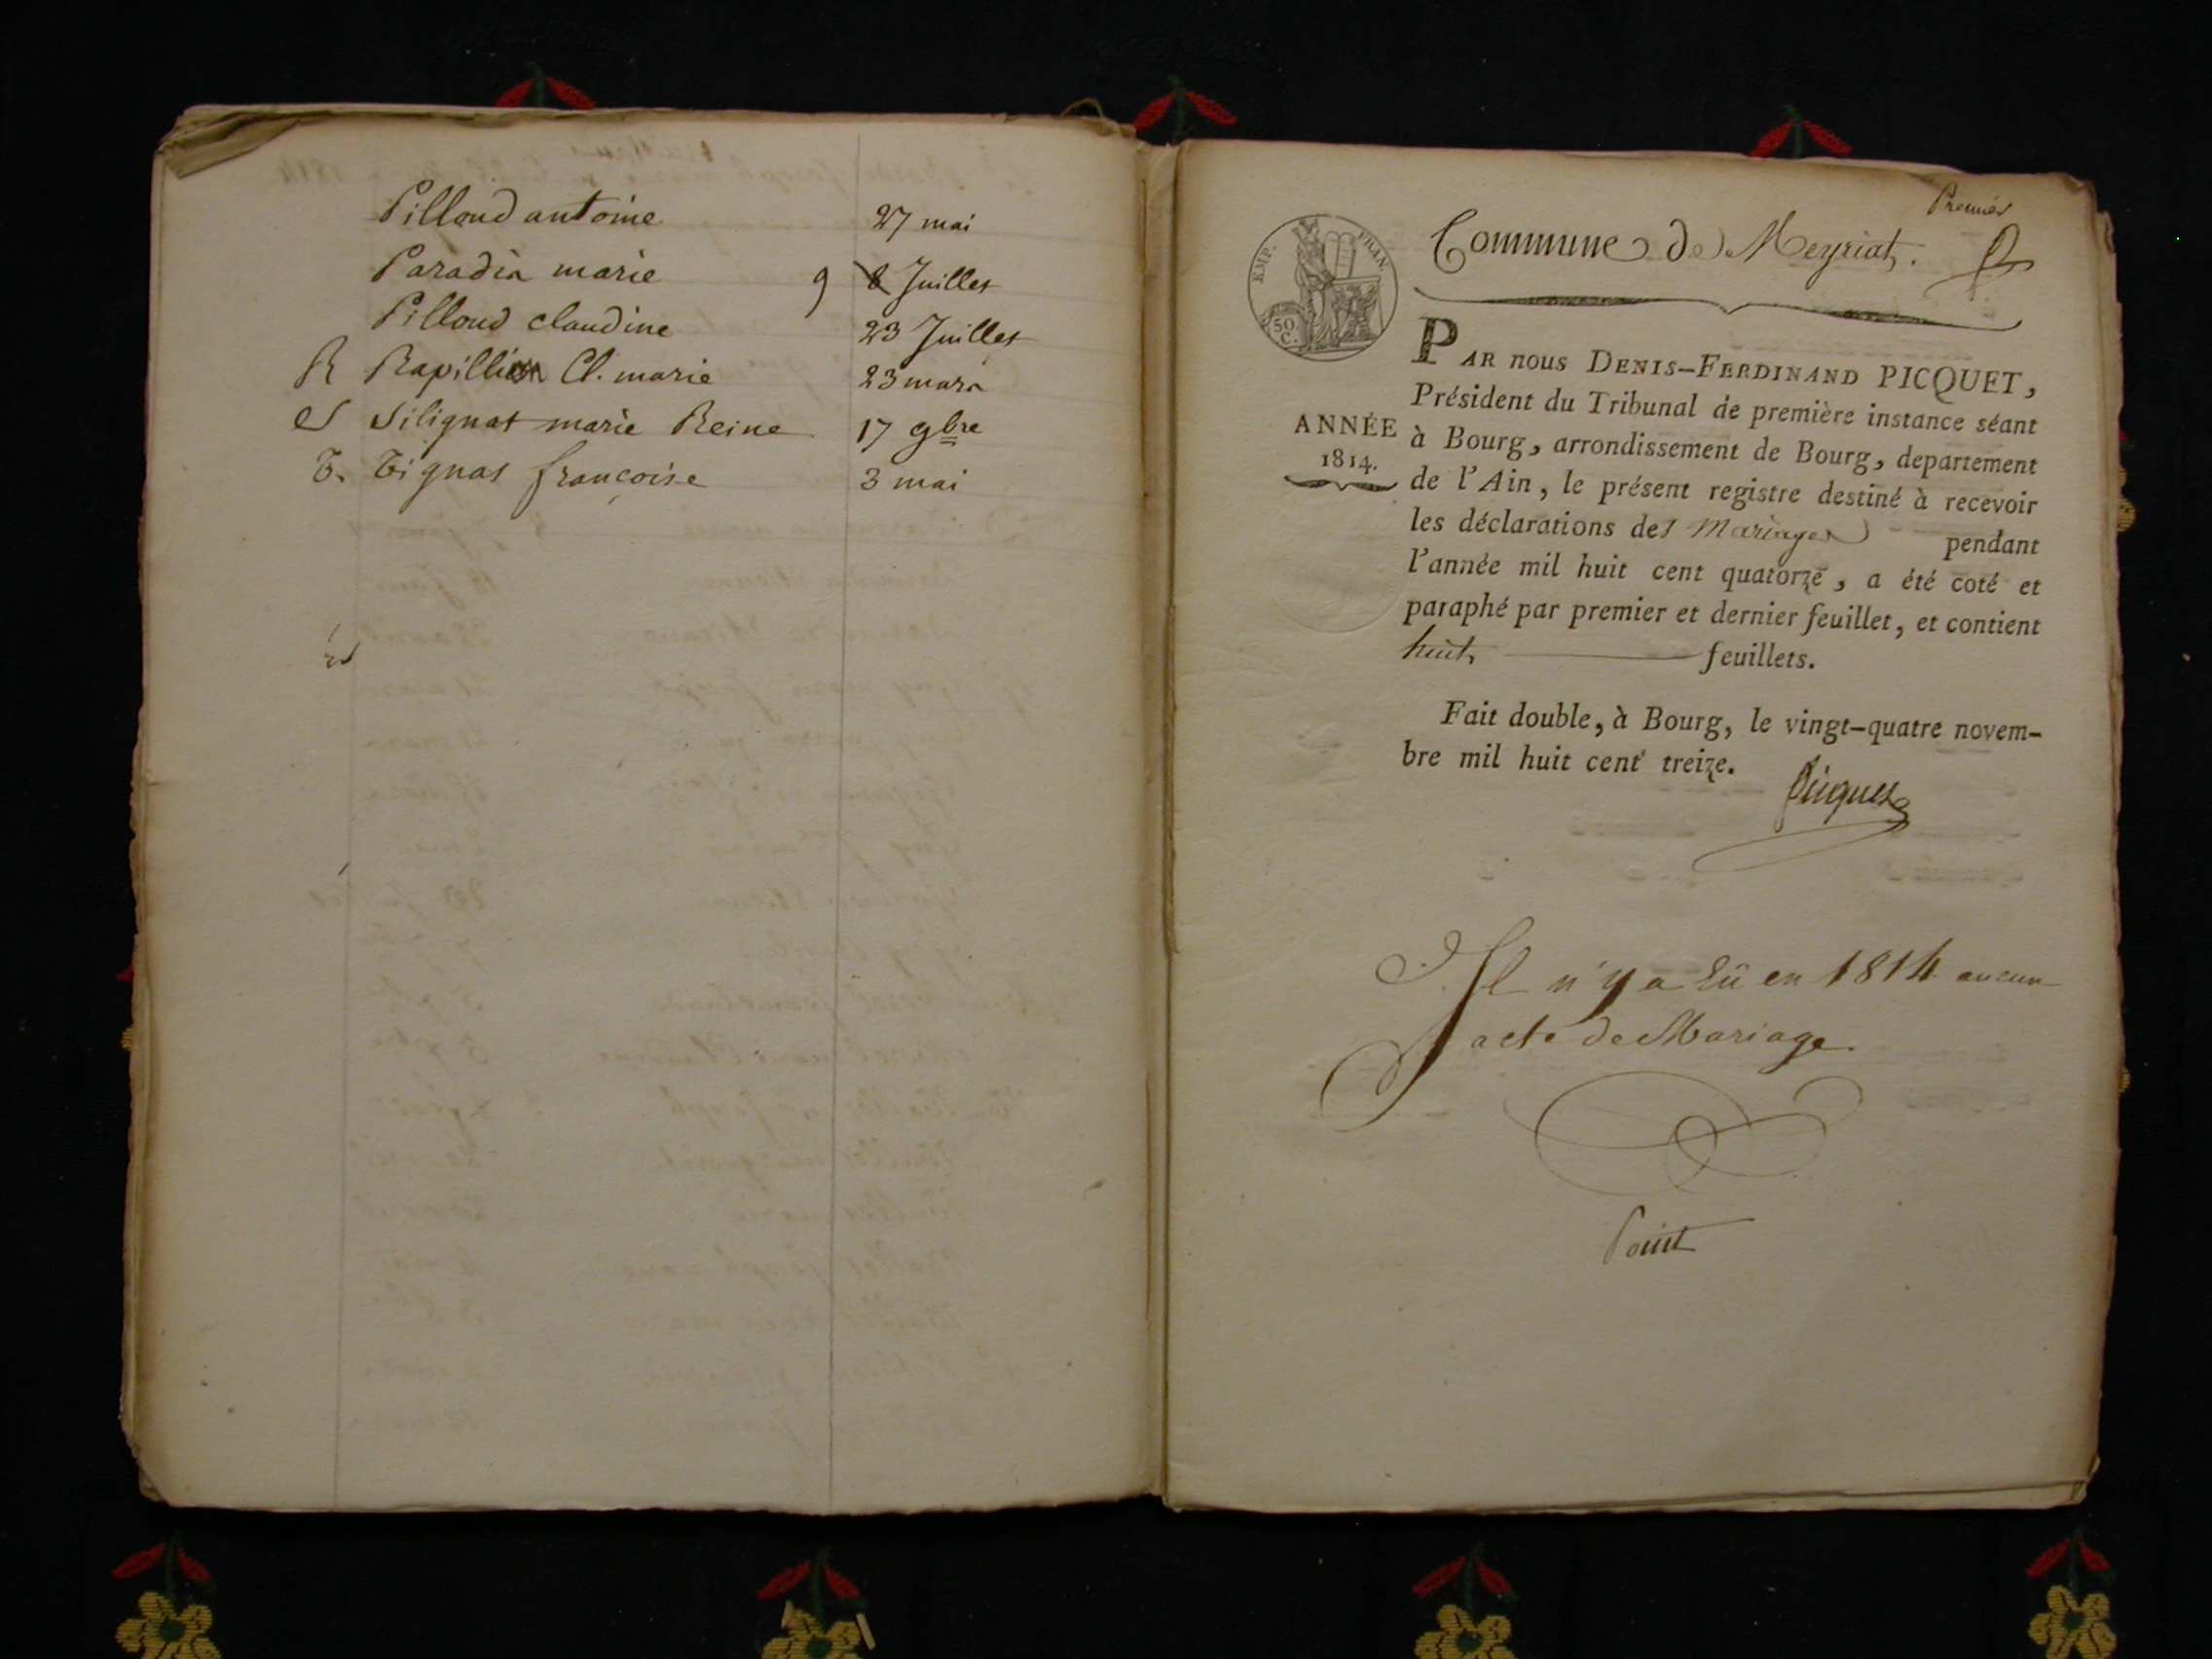 Pilloud antoine 27 mai
Paradis marie 9 8 Juillet
Pilloud claudine 23 Juillet
R Rapillion Cl. marie 23 mars
S Silignat marie Reine 17 9bre
T. Tignat françoise 3 mai
Premier
Commune de Meyriat.
EMP. FRAN.
50 C.
PAR nous DENIS-FERDINAND PICQUET,
Président du Tribunal de première instance séant
ANNÉE à Bourg, arrondissement de Bourg, departement
1814. de l'Ain, le présent registre destiné à recevoir
les déclarations des Mariages pendant
l'année mil huit cent quatorze, a été coté et
paraphé par premier et dernier feuillet, et contient
huit feuillets.
Fait double, à Bourg, le vingt-quatre novem-
bre mil huit cent treize.
Picquet
Il n'y a Eû en 1814 aucun
acte de Mariage.
Point